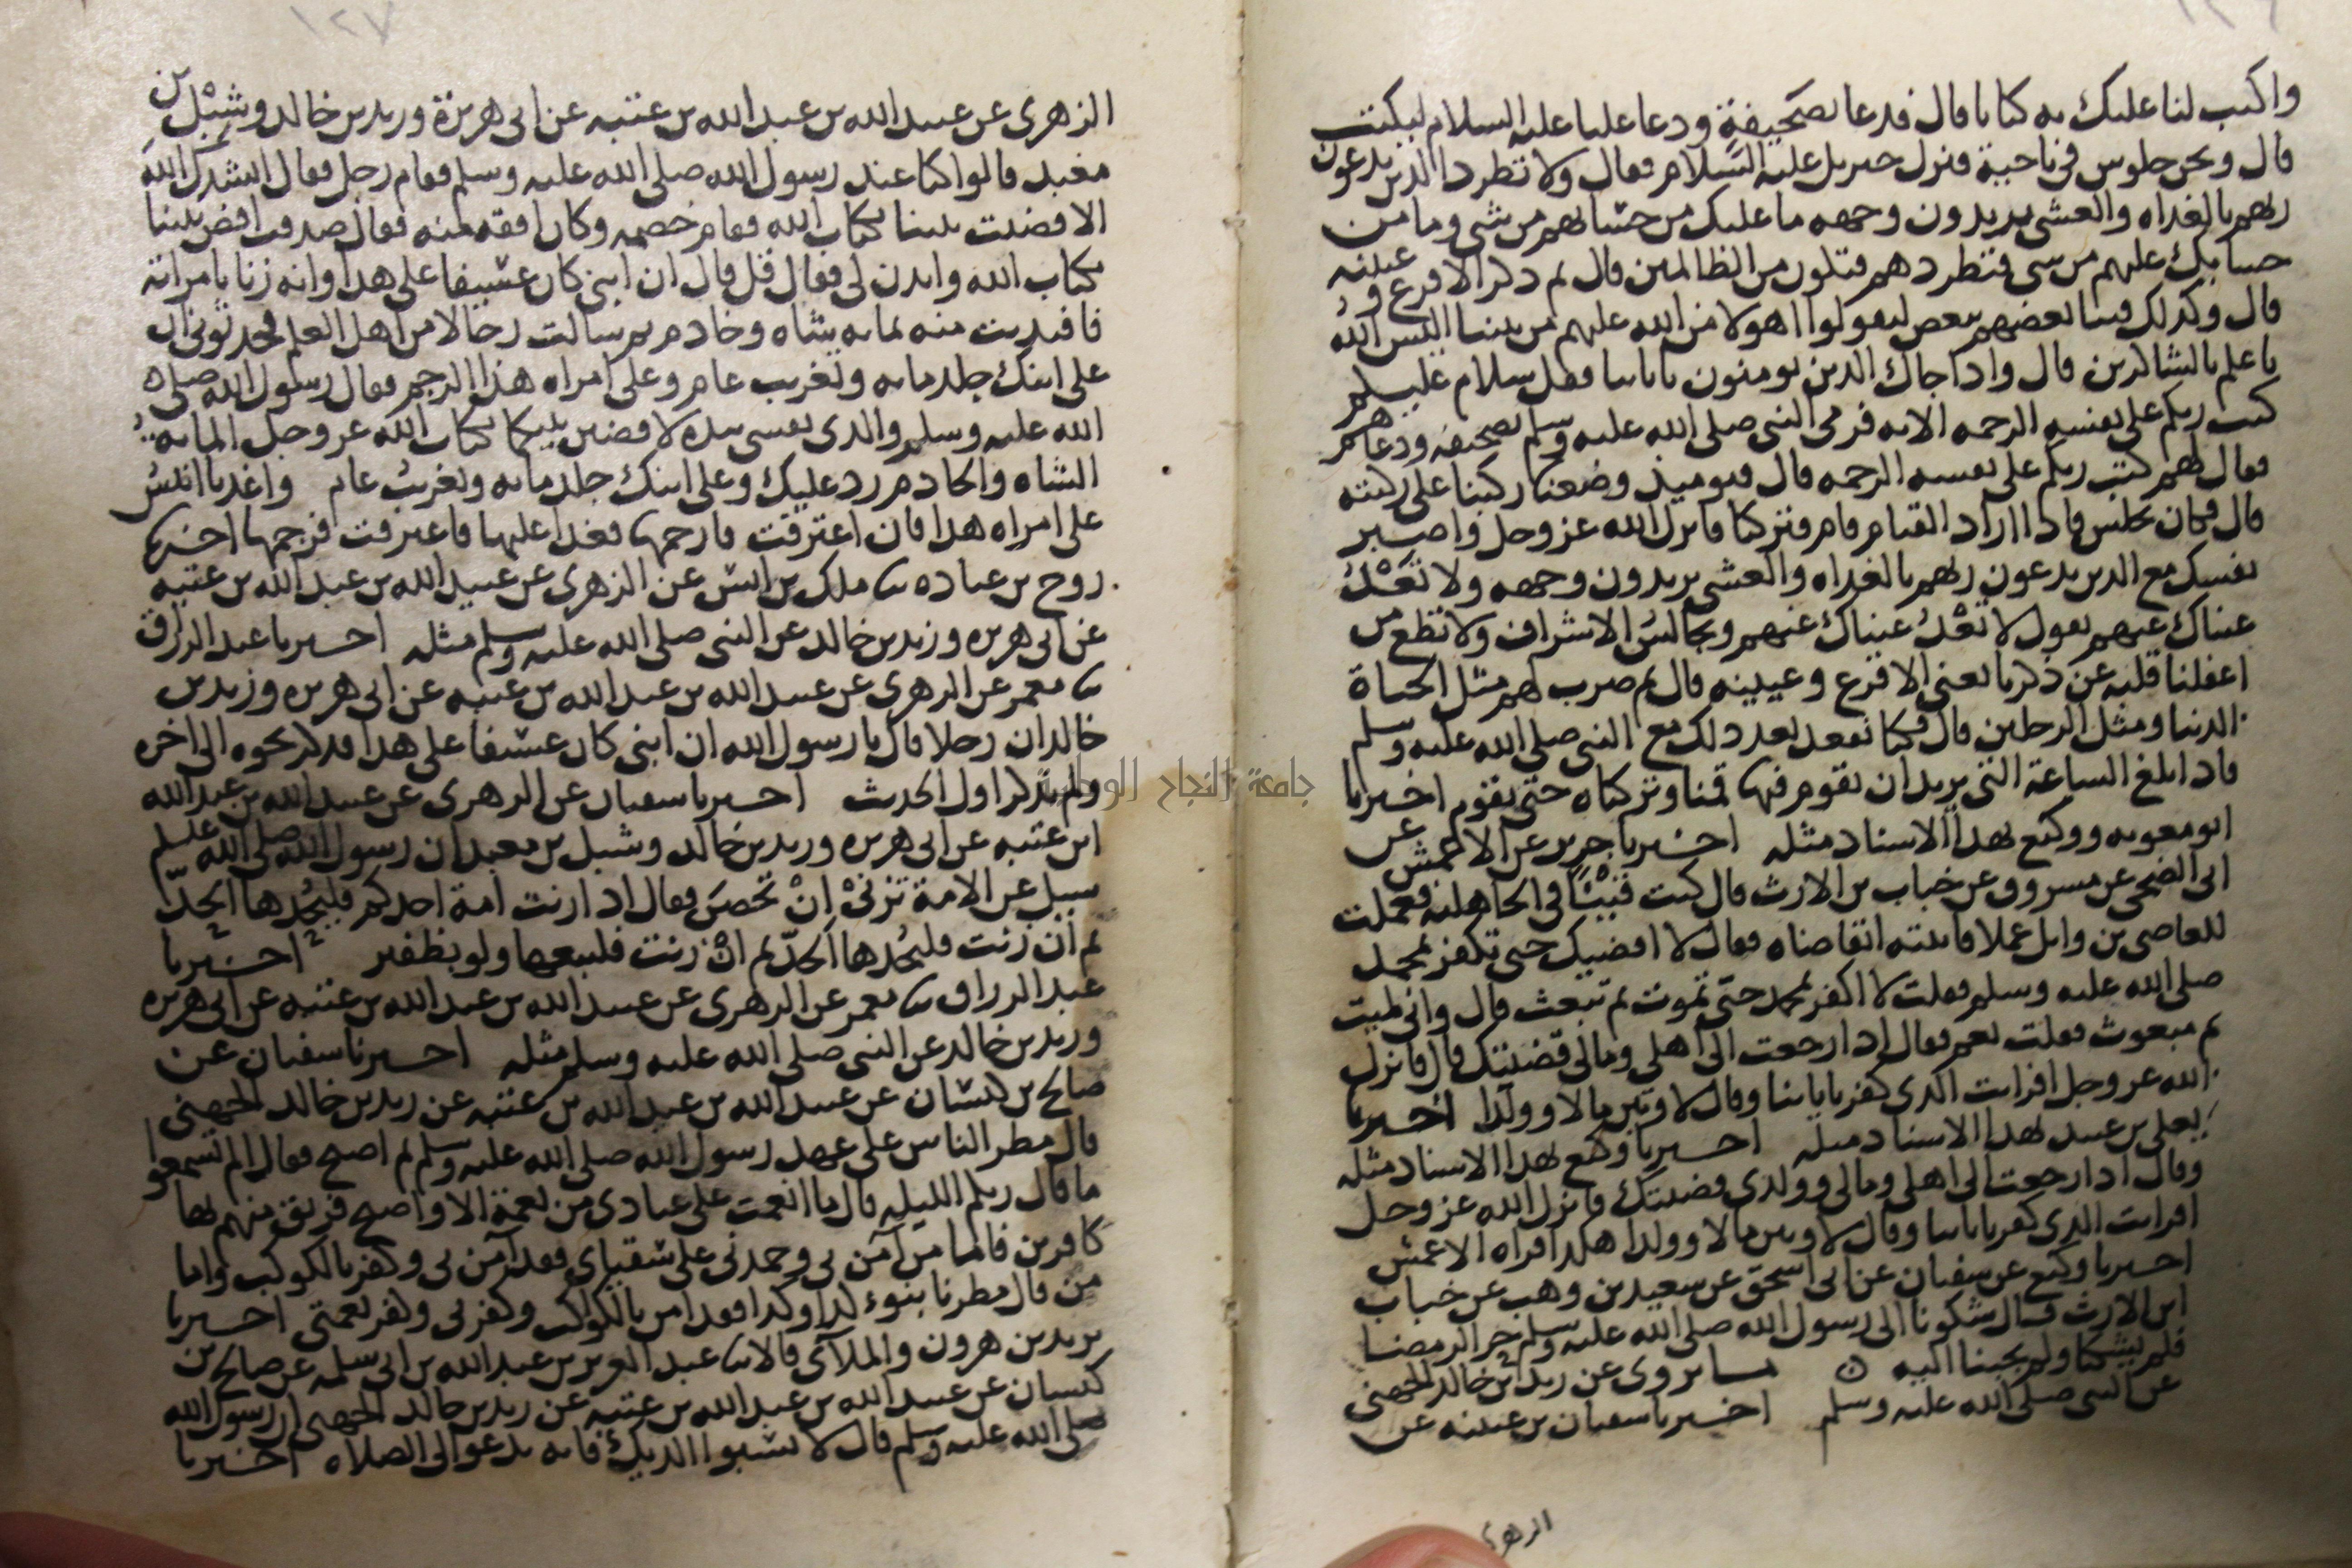 ١٢٦
واكتب لنا عليك به كتابا قال فدعا بصحيفة ودعا عليا عليه السلام ليكتب
قال ونحن جلوس في ناحية فنزل جبريل عليه السلام فقال ولا تطرد الذين يدعون
ربهم بالغداه والعشي يريدون وجهه ما عليك من حسابهم من شي وما من
حسابك عليهم من شي فتطردهم فتكون من الظالمين قال ثم ذكر الاقرع وعيينه
قال وكذلك فتنا بعضهم ببعض ليقولوا اهولا من الله عليهم من بيننا اليس الله
باعلم بالشاكرين قال واذا جاك الذين يومنون باياتنا فقل سلام عليكم
كتب ربكم على نفسه الرحمه الايه فرمى النبي صلى الله عليه وسلم بصحيفه ودعاهم
فقال لهم كتب ربكم على نفسه الرحمه قال فيوميذ وضعنا ركبنا على ركبته
قال فكان يجلس فاذا اراد القيام قام وتركنا فانزل الله عز وجل واصبر
نفسك مع الذين يدعون ربهم بالغداه والعشي يريدون وجهه ولا تَعْدُ
عيناك عنهم يقول لا تعْدُ عيناك عنهم وتجالسُ الاشراف ولا تطع من
اغفلنا قلبه عن ذكرنا يعني الاقرع وعيينه قال ثم ضرب لهم مثل الحياة
الدنيا ومثل الرجلين قال فكنا نقعد بعد ذلك مع النبي صلى الله عليه وسلم
فاذا بلغ الساعة التي يريد ان يقوم فيها قمنا وتركناه حتى يقوم اخبرنا
ابو معويه ووكيع بهذا الاسناد مثله اخبرنا جرير عن الاعمش عن
ابي الضحى عن مسروق عن خباب بن الارت قال كنت قَيْنًا في الجاهليه فعملت
للعاصي بن وايل عملا فاتيته اتقاضاه فقال لا اقضيك حتى تكفر بمحمد
صلى الله عليه وسلم فقلت لا اكفر بمحمد حتى تموت ثم تبعث قال واني لميت
ثم مبعوث فقلت نعم فقال اذا رجعت الى اهلي ومالي قضيتك قال فانزل
الله عز وجل افرايت الذي كفر باياتنا وقال لاوتين مالا وولدا اخبرنا
يعلى بن عبيد بهذا الاسناد مثله اخبرنا وكيع بهذا الاسناد مثله
وقال اذا رجعت الى اهلي ومالي وولدي قضيتك فانزل الله عز وجل
افرايت الذي كفر باياتنا وقال لاوتين مالا وولدا هكذا قراه الاعمش
اخبرنا وكيع عن سفيان عن ابي اسحق عن سعيد بن وهب عن خباب
ابن الارت قال شكونا الى رسول الله صلى الله عليه وسلم حر الرمضا
فلم يشكنا ولم يجبنا اليه ما يروى عن زيد بن خالد الجهني
عن النبي صلى الله عليه وسلم اخبرنا سفيان بن عيينه عن
الزهري
١٢٧
الزهري عن عبيد الله بن عبد الله بن عتبه عن ابي هريرة وزيد بن خالد وشبْل بن
معبد قالوا كنا عند رسول الله صلى الله عليه وسلم فقام رجل فقال انشدك الله
الا قضيت بيننا بكتاب الله فقام خصمه وكان افقه منه فقال صدق اقض بيننا
بكتاب الله وايذن لي فقال قل قال ان ابني كان عسيفا على هذا وانه زنا بامراته
فافتديت منه بمايه شاه وخادم ثم سالت رجالا من اهل العلم فحدثوني ان
على ابنك جلد مايه وتغريب عام وعلى امراه هذا الرجم فقال رسول الله صلى
الله عليه وسلم والذي نفسي بيده لاقضين بينكما بكتاب الله عز وجل المايه
الشاه والخادم رد عليك وعلى ابنك جلد مايه وتغريب عام واغد يا انيس
على امراه هذا فان اعترفت فارجمها فغدا عليها فاعترفت فرجمها اخبرنا
روح بن عباده نا ملك بن انس عن الزهري عن عبيد الله بن عبد الله بن عتبه
عن ابي هريره وزيد بن خالد عن النبي صلى الله عليه وسلم مثله اخبرنا عبد الرزاق
نا معمر عن الزهري عن عبيد الله بن عبد الله بن عتبه عن ابي هريره وزيد بن
خالد ان رجلا قال يا رسول الله ان ابني كان عسيفا على هذا فذكر نحوه الى اخره
ولم يذكر اول الحديث اخبرنا سفيان عن الزهري عن عبيد الله بن عبد الله
ابن عتبه عن ابي هريره وزيد بن خالد وشبل بن معبد ان رسول الله صلى الله عليه وسلم
سيل عن الامة تزني انْ تحصن فقال اذا زنت امة احدكم فليجلدها الحدّ
ثم ان زنت فليجلدها الحدّ ثم انْ زنت فليبعها ولو بظفير اخبرنا
عبد الرزاق نا معمر عن الزهري عن عبيد الله بن عبد الله بن عتبه عن ابي هريره
وزيد بن خالد عن النبي صلى الله عليه وسلم مثله اخبرنا سفيان عن
صالح بن كيسان عن عبيد الله بن عبد الله بن عتبه عن زيد بن خالد الجهني
قال مطر الناس على عهد رسول الله صلى الله عليه وسلم ثم اصبح فقال الم تسمعوا
ما قال ربكم الليله قال ما انعمت على عبادي من نعمة الا واصبح فريق منهم بها
كافرين فاما من آمن بي وحمدني على سقياي فقد آمن بي وكفر بالكوكب واما
من قال مطرنا بنوء كذا وكذا فقد امن بالكوكب وكفر بي وكفر نعمتي اخبرنا
يزيد بن هرون والملآئي قالا نا عبد العزيز بن عبد الله بن ابي سلمه عن صالح بن
كيسان عن عبيد الله بن عبد الله بن عتبه عن زيد بن خالد الجهني ان رسول الله
صلى الله عليه وسلم قال لا تسبوا الديك فانه يدعو الى الصلاه اخبرنا
جامعة النجاح الوطنية